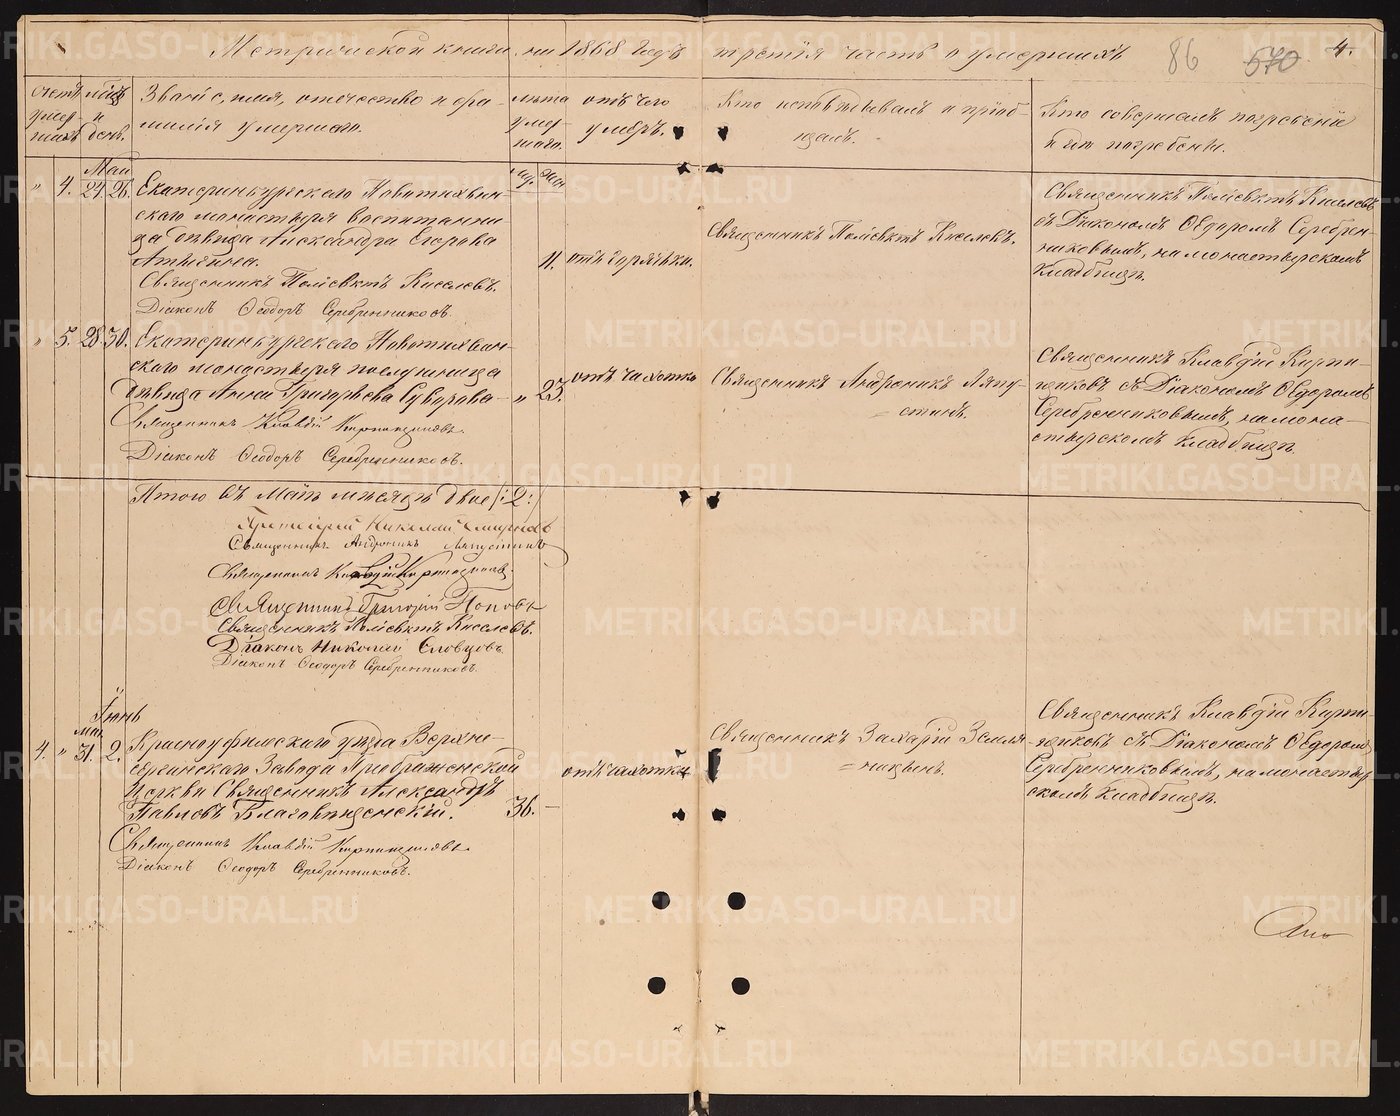 Метрической книги на 1868 годъ третія часть о умершихъ
86
570
4.
Счетъ умер-шихъ
М-цъ и день.
Званіе, имя, отечество и фа-
милія умершаго.
лѣта умер-шаго.
отъ чего
умеръ.
Кто исповѣдывалъ и пріоб-
щалъ.
Кто совершалъ погребеніе
и гдѣ погребены.
Май
Му. Жен.
" 4. 24. 26. Екатеринбургскаго Новотихвин-
скаго монастыря воспитанни-
ца дѣвица Александра Егорова
Священникъ Поліевктъ Киселевъ.
Діаконъ Ѳеодоръ Серебренниковъ.
11. отъ горячки.
Священникъ Поліевктъ Киселевъ.
Священникъ Поліевктъ Киселевъ
съ Діакономъ Ѳедоромъ Серебрен-
никовымъ, на монастырскомъ
кладбищѣ.
" 5. 28. 30. Екатеринбургскаго Новотихвин-
скаго монастыря послушница
дѣвица Анна Григорьева Суворова
Священникъ Клавдій Кирпищиковъ.
Діаконъ Ѳеодоръ Серебренниковъ.
" 23. отъ чахотки
Священникъ Андроникъ Ляпу-
стинъ.
Священникъ Клавдій Кирпи-
щиковъ съ Діакономъ Ѳедоромъ
Серебренниковымъ, на мона-
стырскомъ кладбищѣ.
Итого въ Маѣ мѣсяцѣ двое /:2:/
Протоіерей Николай
Священникъ Андроникъ Ляпустинъ
Священникъ Клавдій Кирпищиковъ
Священникъ Григорій Поповъ
Священникъ Поліевктъ Киселевъ.
Діаконъ Николай Словцовъ
Діаконъ Ѳеодоръ Серебренниковъ.
Іюнь
Мая
4. " 31. 2. Красноуфимскаго уѣзда Верхне-
сергинскаго Завода Преображенской
Церкви Священникъ Александръ
Павловъ Благовѣщенскій.
Священникъ Клавдій Кирпищиковъ
Діаконъ Ѳеодоръ Серебренниковъ.
36. —
отъ чахотки
Священникъ Захарій Земля-
ницынъ.
Священникъ Клавдій Кирпи-
щиковъ съ Діакономъ Ѳедоромъ
Серебренниковымъ, на монастыр
скомъ кладбищѣ.
METRIKI.GASO-URAL.RU